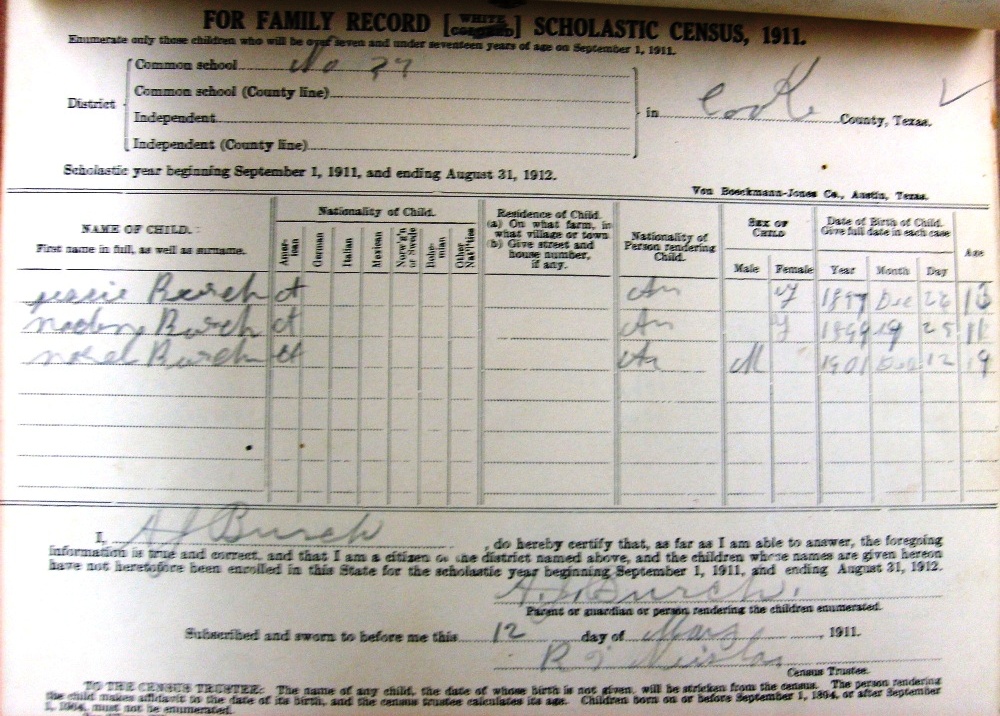 FOR FAMILY RECORD [WHITE COLORED] SCHOLASTIC CENSUS, 1911.
Enumerate only those children who will be over seven and under seventeen years of age on September 1, 1911.
District
Common school No
Common school (County line)
Independent
Independent (County line)
in Cooke County, Texas.
Scholastic year beginning September 1, 1911, and ending August 31, 1912.
Von Boeckmann-Jones Co., Austin, Texas.
NAME OF CHILD.
First name in full, as well as surname.
Nationality of Child.
American German Italian Mexican Norw'g'n or Swede Bohemian Other Nat'lities
Residence of Child.
(a) On what farm, in what village or town.
(b) Give street and house number, if any.
Nationality of Person rendering Child.
SEX OF CHILD
Male Female
Date of Birth of Child.
Give full date in each case
Year Month Day
Age
Burch Am 1897 Dec
Burch Am 1899
Burch Am M 1901 12 9
I, A J Burch, do hereby certify that, as far as I am able to answer, the foregoing
information is true and correct, and that I am a citizen of the district named above, and the children whose names are given hereon
have not heretofore been enrolled in this State for the scholastic year beginning September 1, 1911, and ending August 31, 1912.
A. J. Burch.
Parent or guardian or person rendering the children enumerated.
Subscribed and sworn to before me this 12 day of Mar, 1911.
Census Trustee.
TO THE CENSUS TRUSTEE: The name of any child, the date of whose birth is not given, will be stricken from the census. The person rendering
the child makes affidavit to the date of its birth, and the census trustee calculates its age. Children born on or before September 1, 1894, or after September
1, 1904, must not be enumerated.